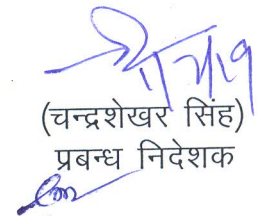 (चन्द्रशेखर सिंह)
प्रबन्ध निदेशक